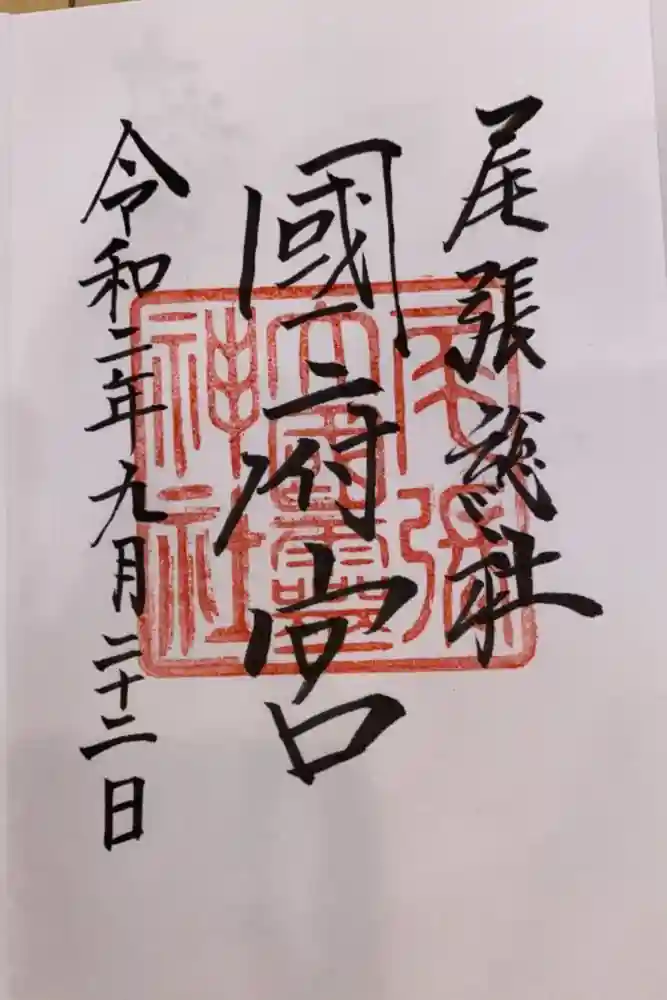 尾張総社
國府宮
令和二年九月二十二日
尾張
大國霊
神社